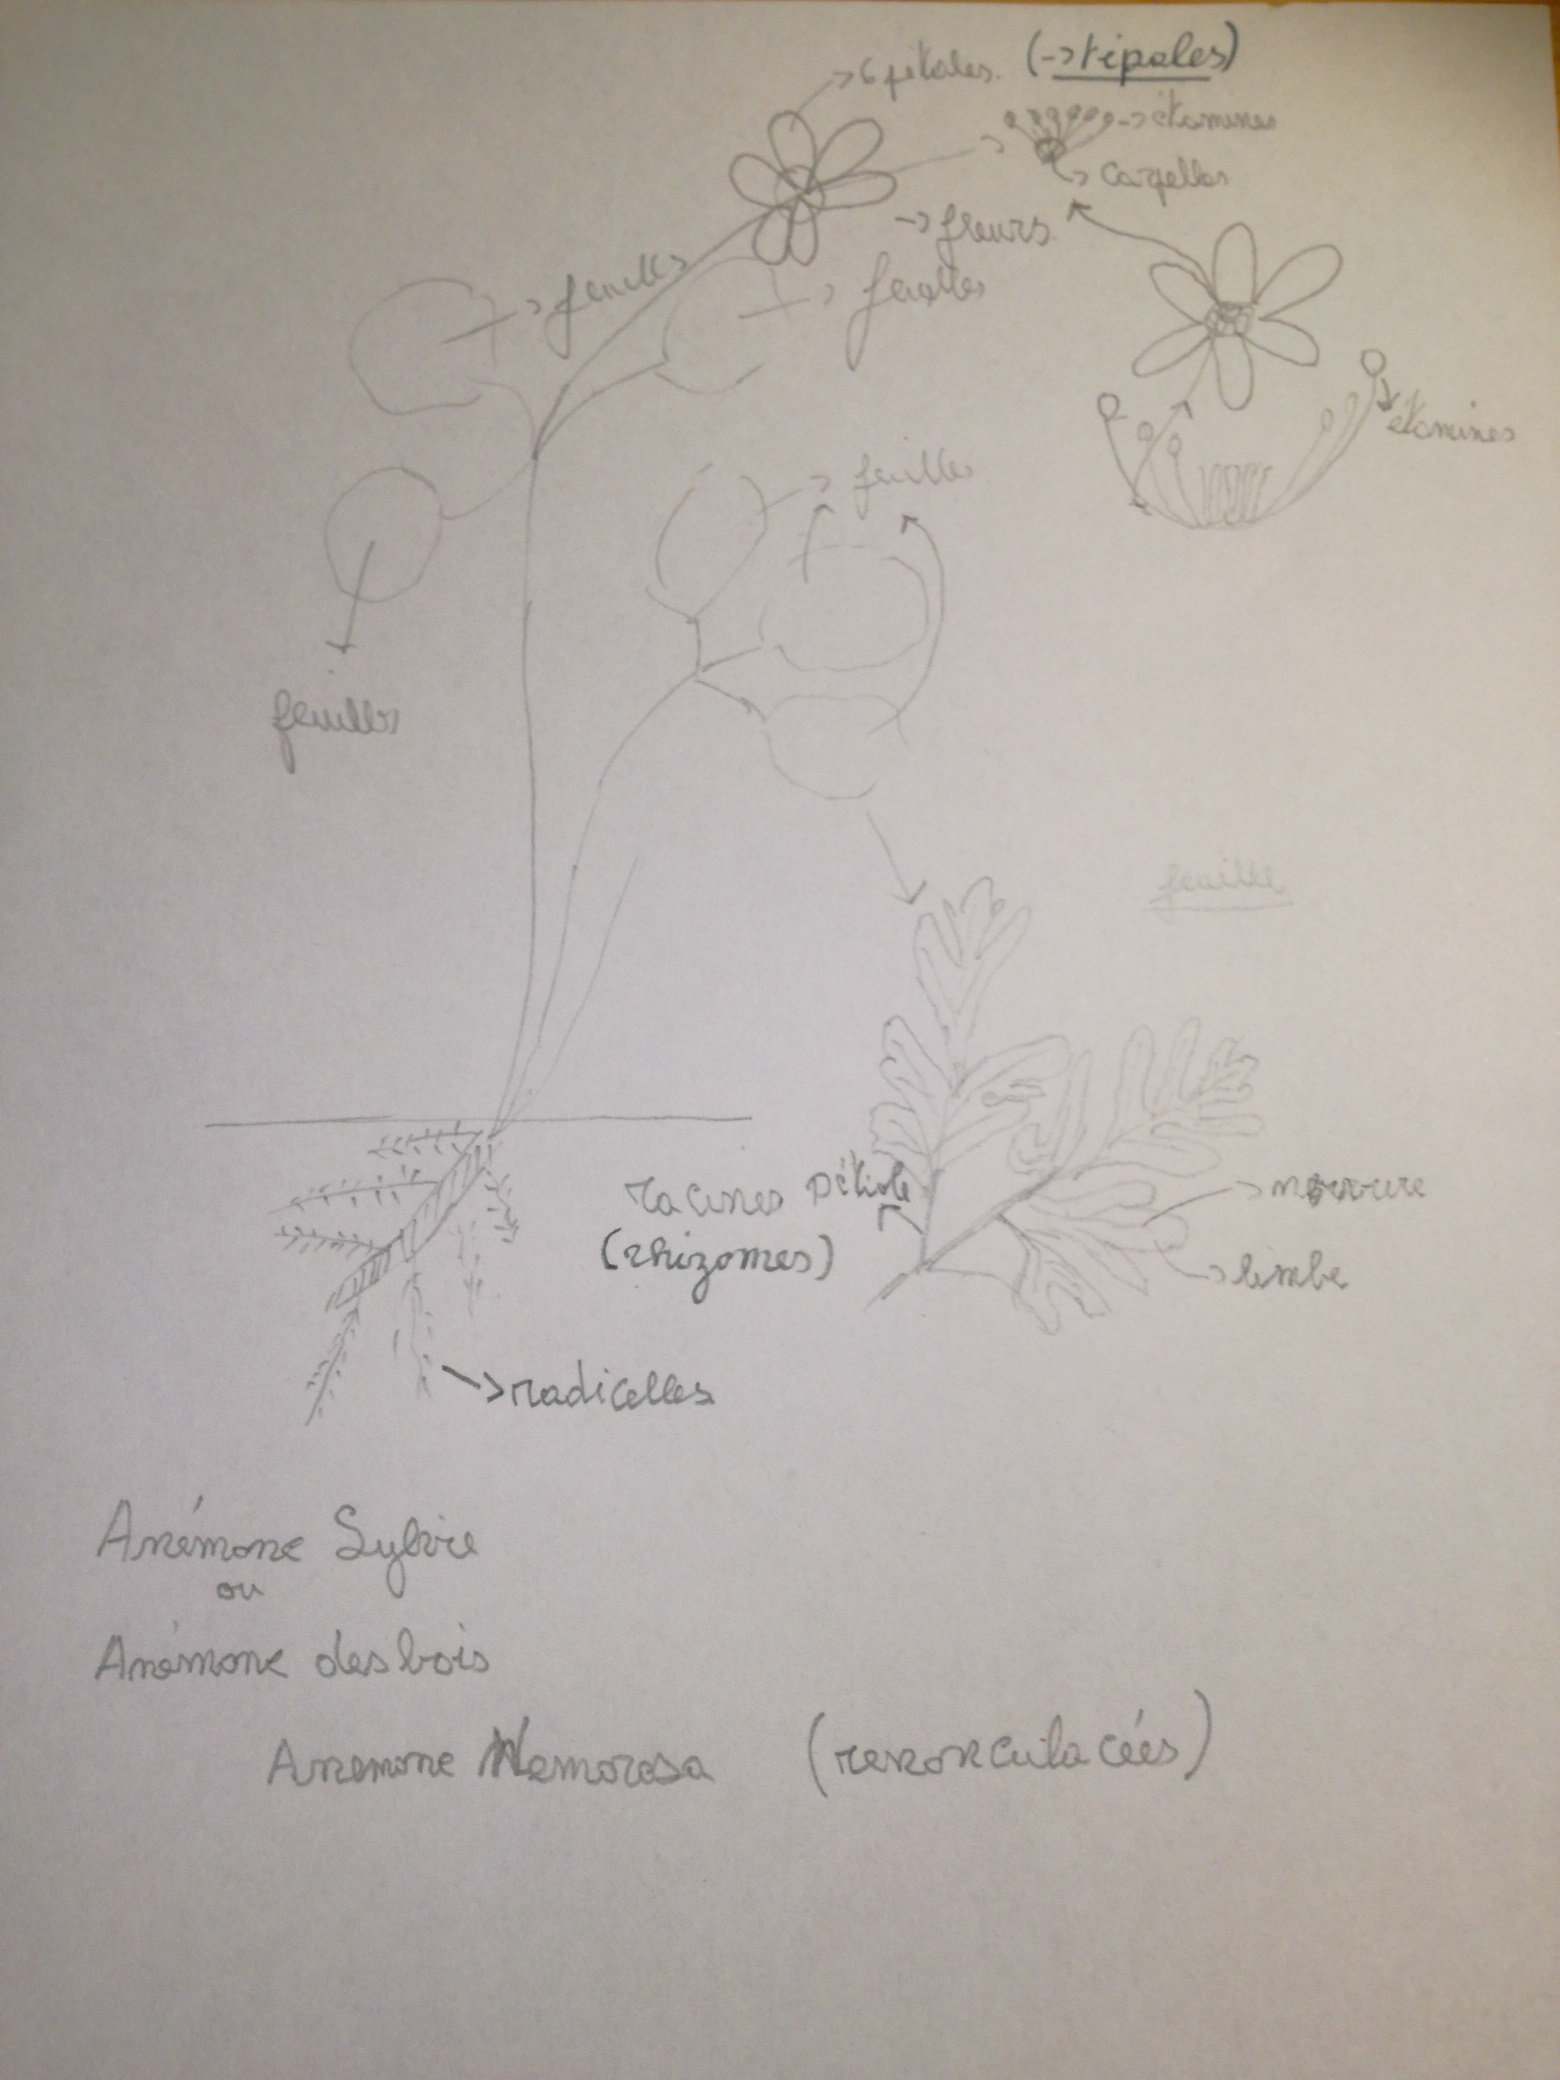 ->6 pétales. (->tépales)
-> étamines
-> Carpelles
-> fleurs
-> feuilles
-> feuilles
étamines
-> feuilles
feuilles
feuille
racines
(rhizomes)
Pétiole
-> nervure
-> limbe
->radicelles
Anémone Sylvie
ou
Anémone des bois
Anemone Nemorosa (renonculacées)